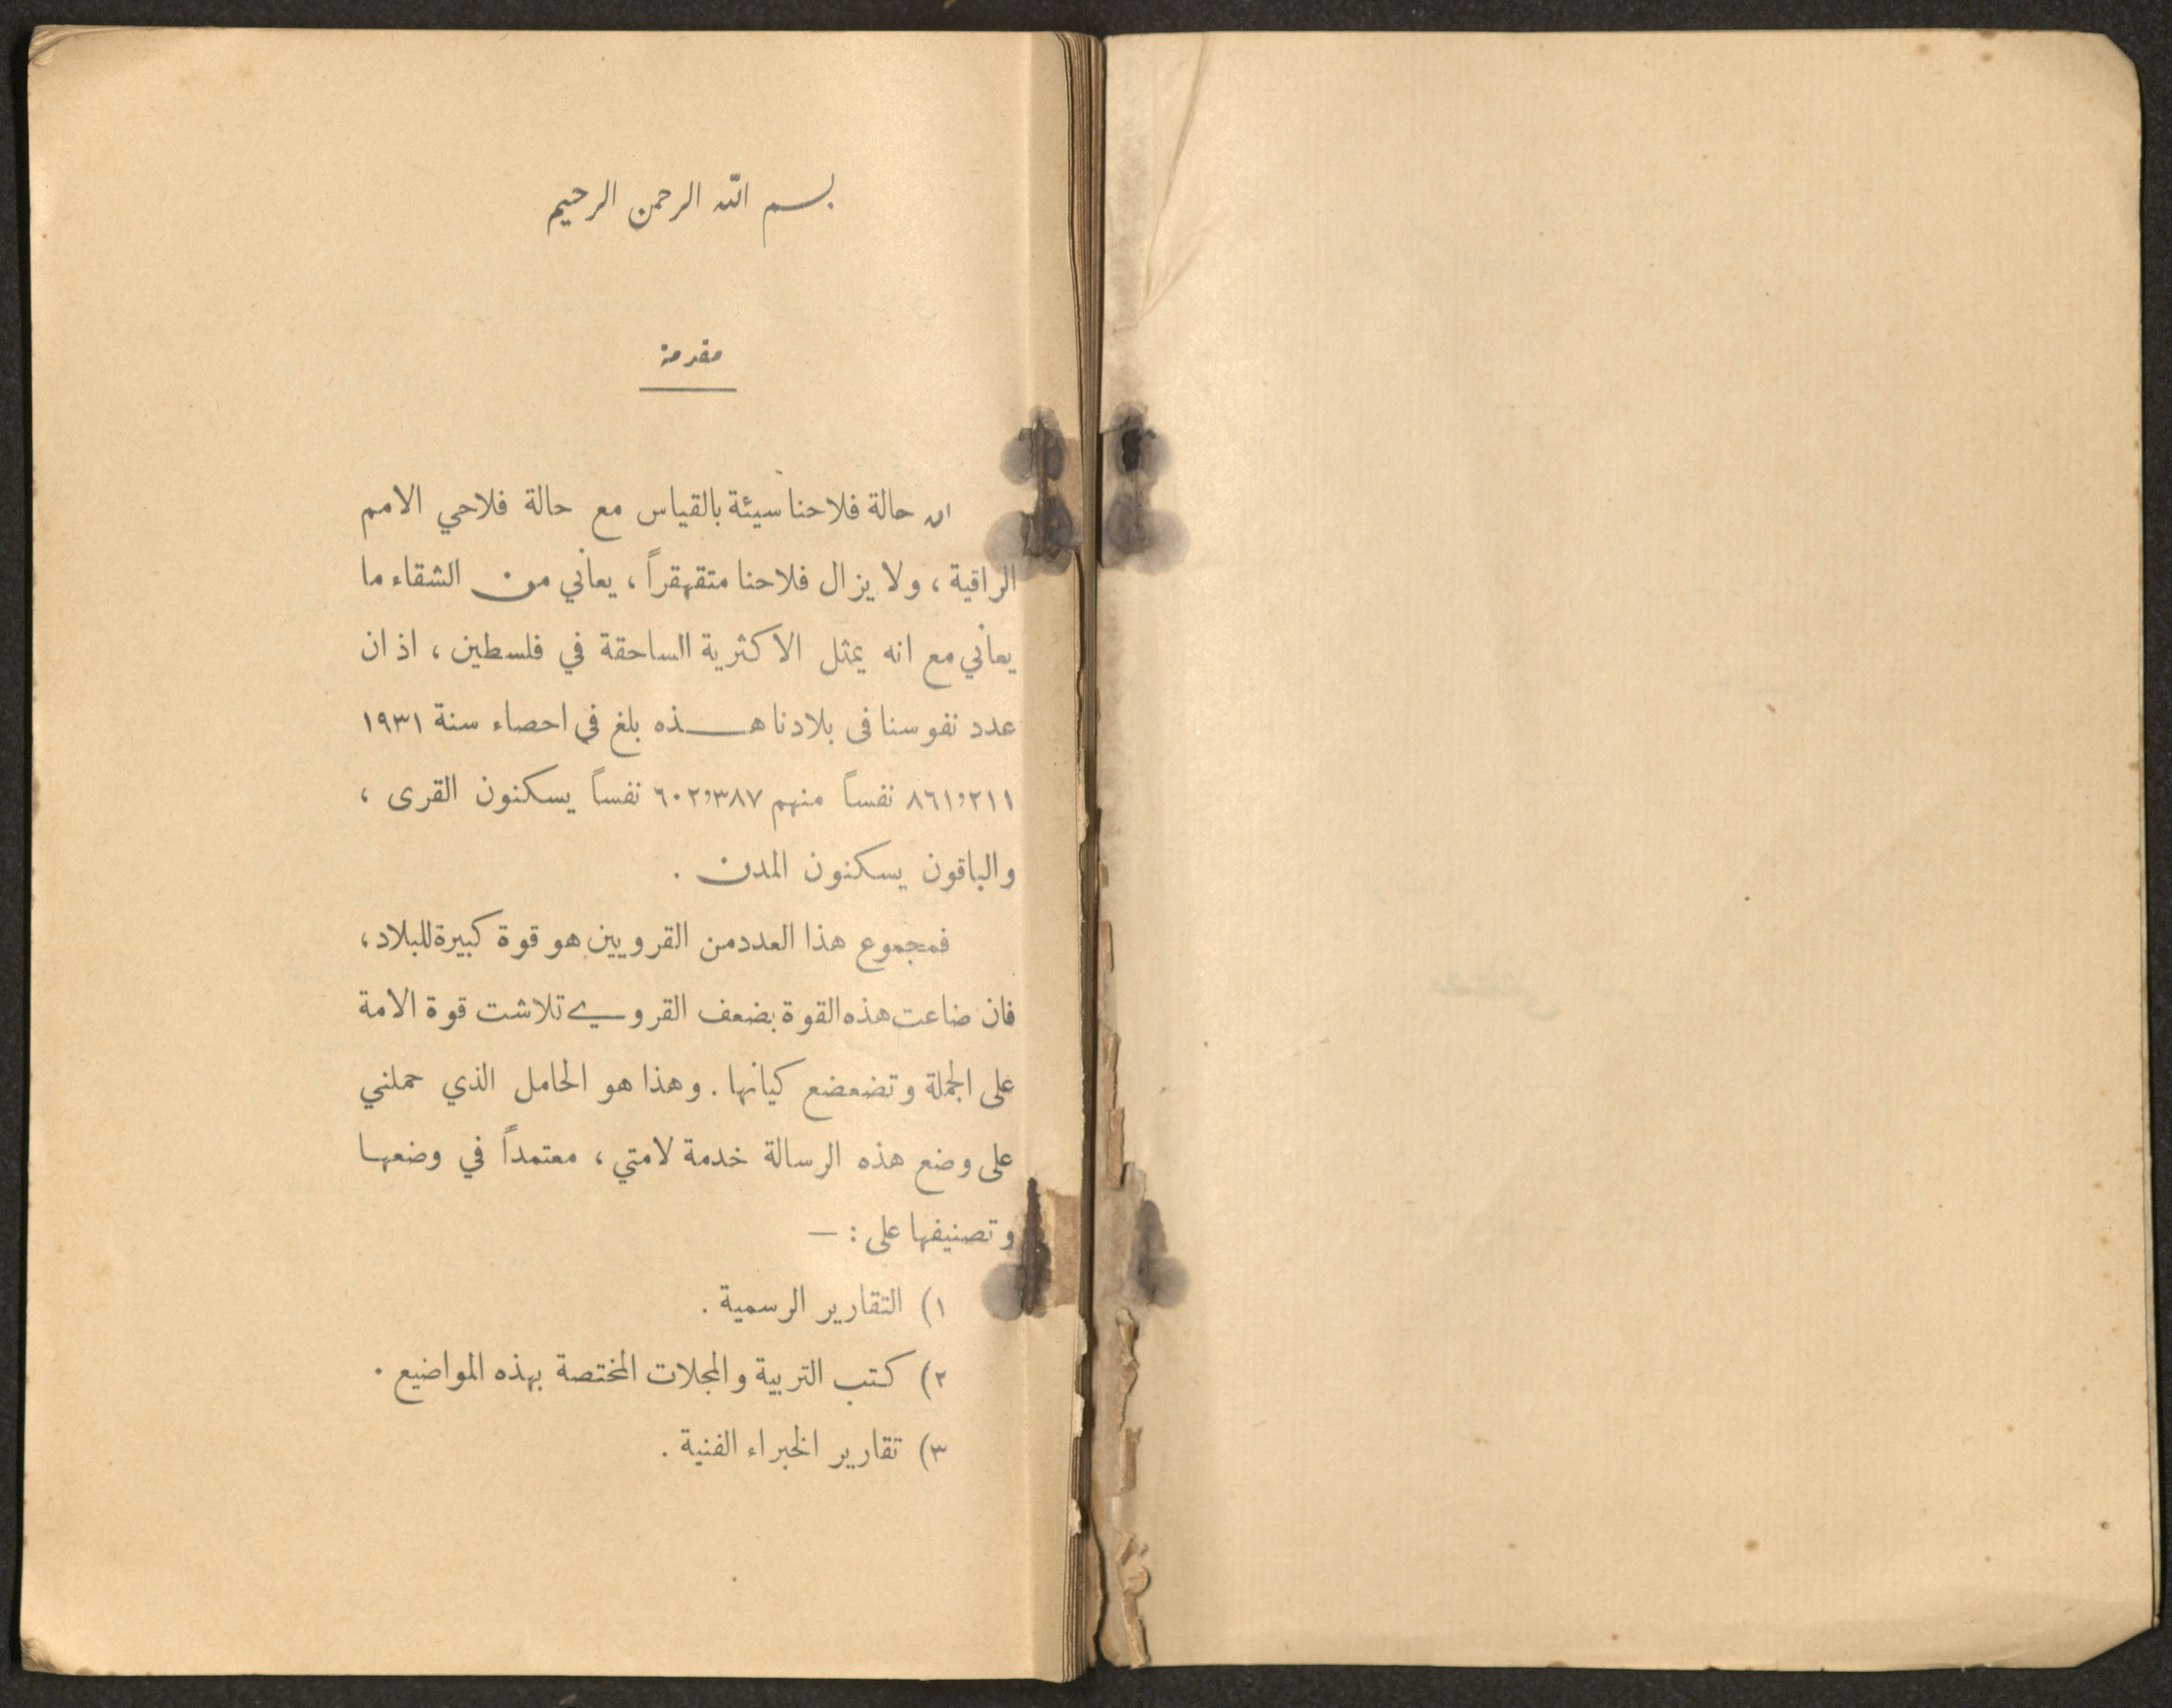 بسم الله الرحمن الرحيم
مقدمة
ان حالة فلاحنا سيئة بالقياس مع حالة فلاحي الامم
الراقية ، ولا يزال فلاحنا متقهقراً ، يعاني من الشقاء ما
يعاني مع انه يمثل الاكثرية الساحقة في فلسطين ، اذ ان
عدد نفوسنا فى بلادنا هـذه بلغ في احصاء سنة ١٩٣١
٨٦١،٢١١ نفساً منهم ٦٠٢،٣٨٧ نفساً يسكنون القرى ،
والباقون يسكنون المدن .
فمجموع هذا العدد من القرويين هو قوة كبيرة للبلاد ،
فان ضاعت هذه القوة بضعف القروي تلاشت قوة الامة
على الجملة وتضعضع كيانها . وهذا هو الحامل الذي حملني
على وضع هذه الرسالة خدمة لامتي ، معتمداً في وضعها
وتصنيفها على : —
١) التقارير الرسمية .
٢) كتب التربية والمجلات المختصة بهذه المواضيع .
٣) تقارير الخبراء الفنية .